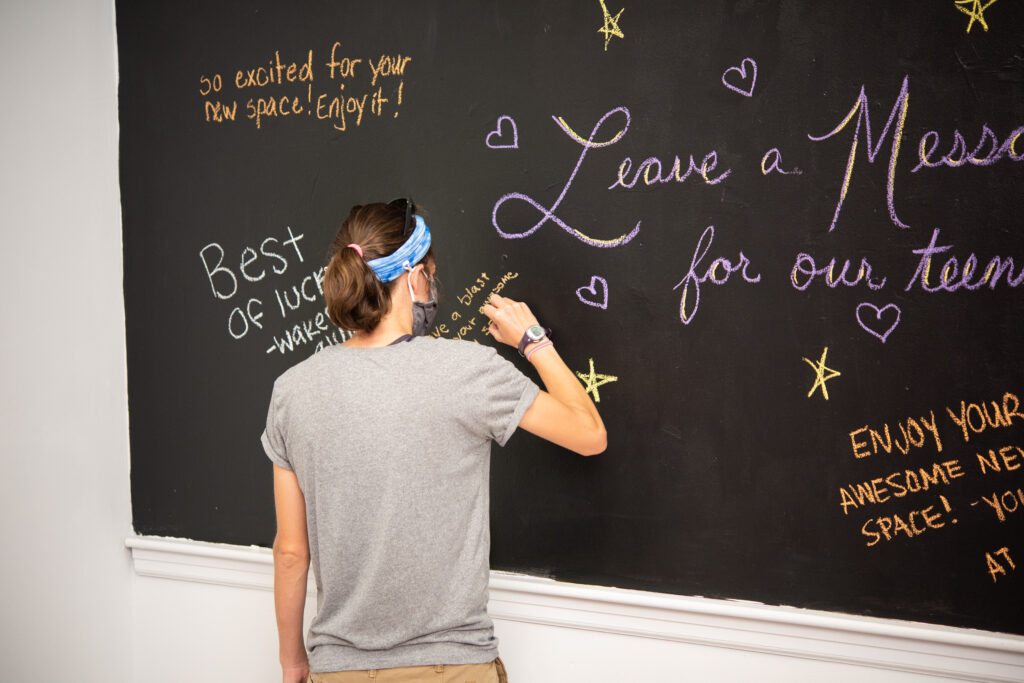 so excited for your
new space! Enjoy it!
Leave a
for our teens
Best
of luck
-wake
a blast
your awesome
ENJOY YOUR
AWESOME
SPACE!
AT